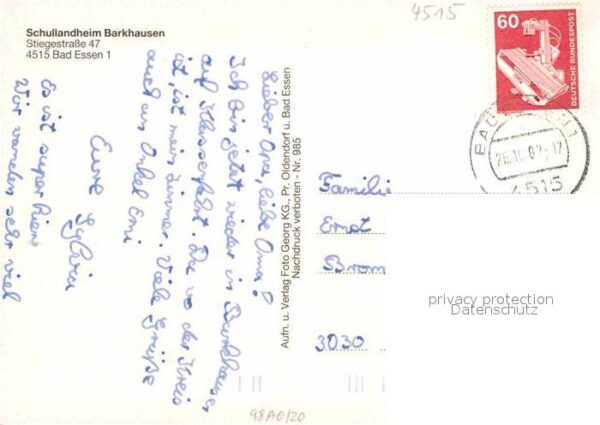 4515
Schullandheim Barkhausen
Stiegestraße 47
4515 Bad Essen 1
60
DEUTSCHE BUNDESPOST
BAD ESSEN 1
4515
Lieber Opa, liebe Oma!
Ich bin jetzt wieder in Barkhausen
auf Klassenfahrt. Da wo der Kreis
ist, ist mein Zimmer. Viele Grüße
auch an Onkel Emi
Eure Sylvia
Es ist super hier
Wir wandern sehr viel
Aufn. u. Verlag Foto Georg KG., Pr. Oldendorf u. Bad Essen
Nachdruck verboten - Nr. 985
Familie
Ernst
Brom
3030
privacy protection
Datenschutz
98A0/20